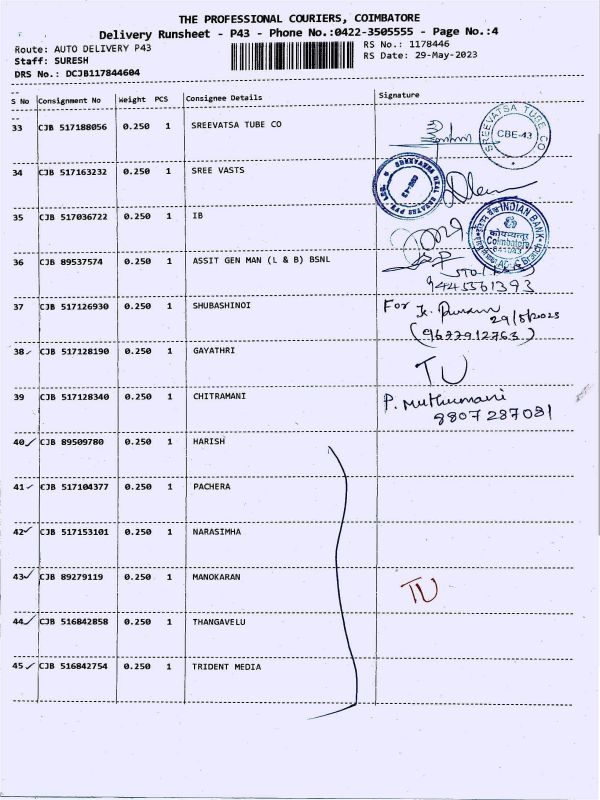 THE PROFESSIONAL COURIERS, COIMBATORE
Delivery Runsheet - P43 - Phone No.:0422-3505555 - Page No.:4
Route: AUTO DELIVERY P43
RS No.: 1178446
Staff: SURESH
RS Date: 29-May-2023
DRS No.: DCJB117844604
S No Consignment No Weight PCS Consignee Details Signature
33 CJB 517188056 0.250 1 SREEVATSA TUBE CO
SREEVATSA TUBE CO
CBE-43
34 CJB 517163232 0.250 1 SREE VASTS
35 CJB 517036722 0.250 1 IB
INDIAN BANK
कोयम्बत्तूर
Coimbatore
641043
36 CJB 89537574 0.250 1 ASSIT GEN MAN (L & B) BSNL
9445561393
37 CJB 517126930 0.250 1 SHUBASHINOI
For
29/5/2023
(9677912763)
38 CJB 517128190 0.250 1 GAYATHRI
TU
39 CJB 517128340 0.250 1 CHITRAMANI
P. Muthumani
8807287081
40 CJB 89509780 0.250 1 HARISH
41 CJB 517104377 0.250 1 PACHERA
42 CJB 517153101 0.250 1 NARASIMHA
43 CJB 89279119 0.250 1 MANOKARAN
TU
44 CJB 516842858 0.250 1 THANGAVELU
45 CJB 516842754 0.250 1 TRIDENT MEDIA